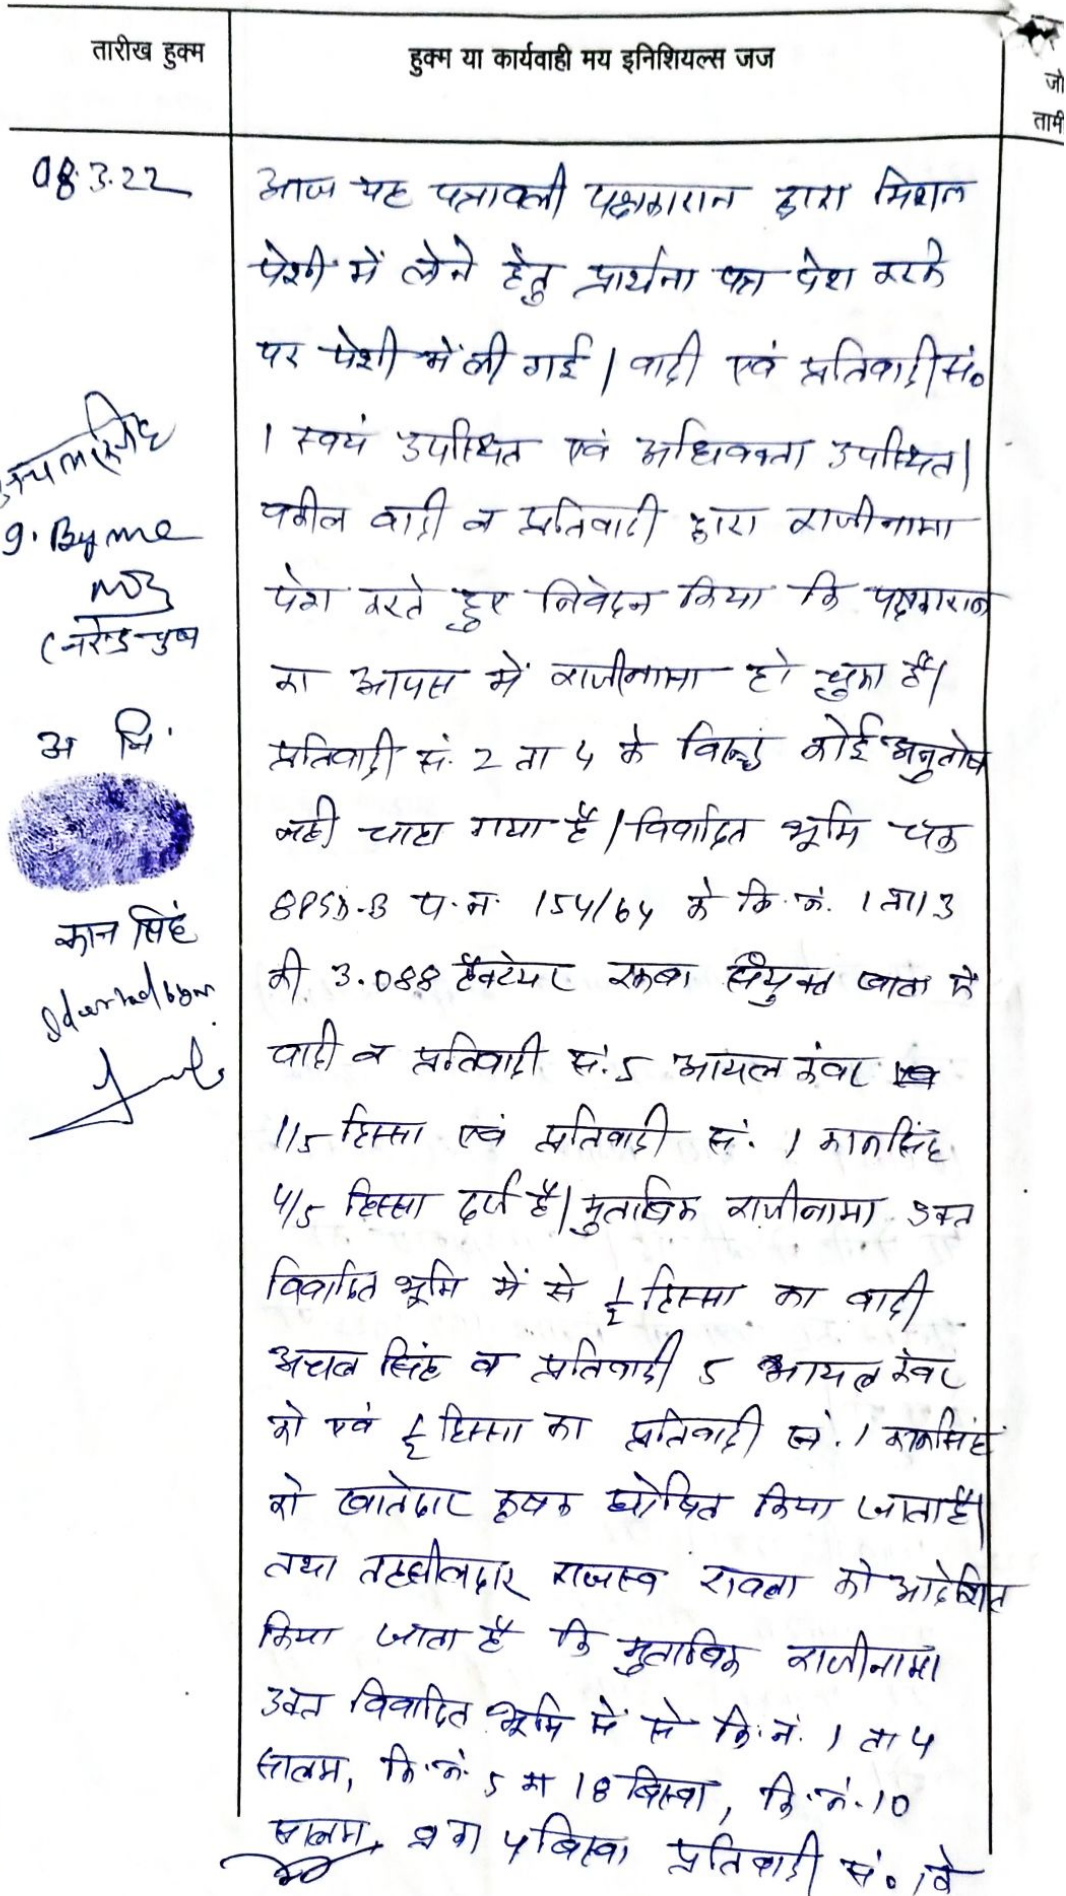 तारीख हुक्म
हुक्म या कार्यवाही मय इनिशियल्स जज
जो
तामी
08.3.22
आज यह पत्रावली पक्षकारान द्वारा मिशल
पेशी में लेने हेतु प्रार्थना पत्र पेश करने
पर पेशी में ली गई। वादी एवं प्रतिवादी सं०
1 स्वयं उपस्थित एवं अधिवक्ता उपस्थित।
वकील वादी व प्रतिवादी द्वारा राजीनामा
पेश करते हुए निवेदन किया कि पक्षकारान
का आपस में राजीनामा हो चुका है।
प्रतिवादी सं. 2 ता 4 के विरूद्ध कोई अनुतोष
नहीं चाहा गया है। विवादित भूमि चक
8PSD-B प.न. 154/64 के कि.नं. 1 ता 13
की 3.088 हैक्टेयर रकबा संयुक्त खाता में
वादी व प्रतिवादी सं. 5 आयल कंवर
1/5 हिस्सा एवं प्रतिवादी सं. 1 कानसिंह
4/5 हिस्सा दर्ज है। मुताबिक राजीनामा उक्त
विवादित भूमि में से 1/2 हिस्सा का वादी
अचल सिंह व प्रतिवादी 5 आयल कंवर
को एवं 1/2 हिस्सा का प्रतिवादी सं. 1 कानसिंह
को खातेदार कृषक घोषित किया जाता है।
तथा तहसीलदार राजस्व रावला को आदेशित
किया जाता है कि मुताबिक राजीनामा
उक्त विवादित भूमि में से कि.नं. 1 ता 4
सालम, कि.नं. 5 म 18 बिस्वा, कि.नं. 10
सालम, 4 बिस्वा प्रतिवादी सं० 1 के
अचलसिंह
g. By me
(नरेन्द्र
अ नि.
कान सिंह
Identified by